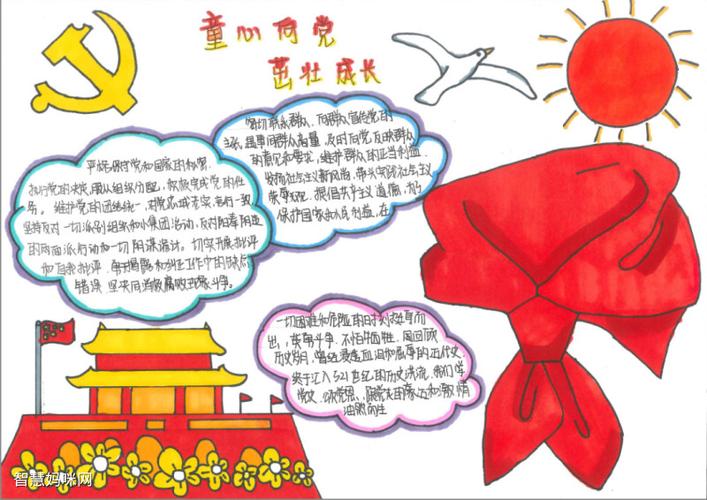 童心向党
茁壮成长
密切联系群众，向群众宣传党的
主张，遇事同群众商量，及时向党反映群众
的意见和要求，维护群众的正当利益
发扬社会主义新风尚，带头实践社会主义
荣辱观，提倡共产主义道德，为
保护国家和人民利益，在
严格保守党和国家的秘密
执行党的决定，服从组织分配，积极完成党的任
务。维护党的团结统一，对党忠诚老实，言行一致
坚持反对一切派别组织和小集团活动，反对阳奉阴违
的两面派行为和一切阴谋诡计。切实开展批评
和自我批评，勇于揭露和纠正工作中的缺点
错误，坚决同消极腐败现象斗争。
一切困难和危险的时刻挺身而
出，英勇斗争，不怕牺牲。回顾
历史岁月，曾经浸透血泪和屈辱的近代史
终于汇入21世纪的历史洪流，我们学
党史，颂党恩，跟党走的豪迈和激情
油然而生
智慧妈咪网